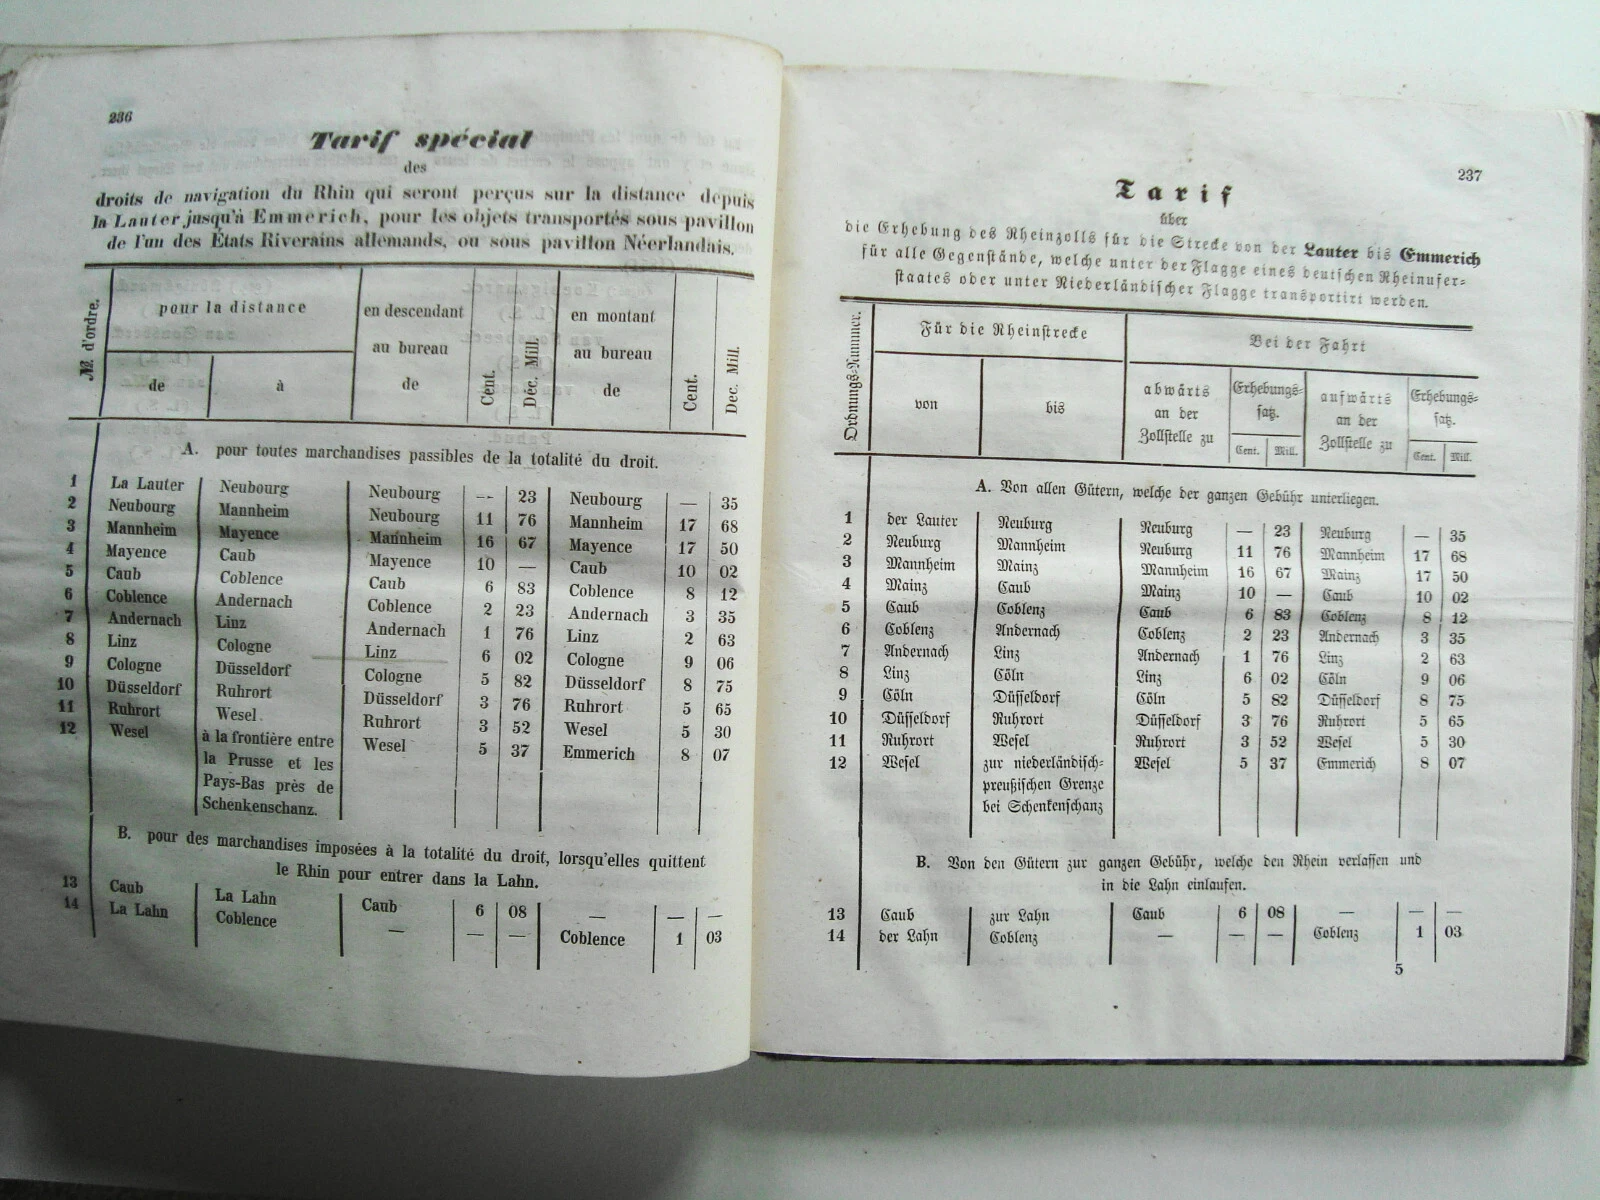 236
Tarif spécial
des
droits de navigation du Rhin qui seront perçus sur la distance depuis
la Lauter jusqu'à Emmerich, pour les objets transportés sous pavillon
de l'un des États Riverains allemands, ou sous pavillon Néerlandais.
№. d'ordre. pour la distance en descendant au bureau de Cent. Déc. Mill. en montant au bureau de Cent. Dec. Mill.
de à
A. pour toutes marchandises passibles de la totalité du droit.
1 La Lauter Neubourg Neubourg -- 23 Neubourg — 35
2 Neubourg Mannheim Neubourg 11 76 Mannheim 17 68
3 Mannheim Mayence Mannheim 16 67 Mayence 17 50
4 Mayence Caub Mayence 10 — Caub 10 02
5 Caub Coblence Caub 6 83 Coblence 8 12
6 Coblence Andernach Coblence 2 23 Andernach 3 35
7 Andernach Linz Andernach 1 76 Linz 2 63
8 Linz Cologne Linz 6 02 Cologne 9 06
9 Cologne Düsseldorf Cologne 5 82 Düsseldorf 8 75
10 Düsseldorf Ruhrort Düsseldorf 3 76 Ruhrort 5 65
11 Ruhrort Wesel Ruhrort 3 52 Wesel 5 30
12 Wesel à la frontière entre Wesel 5 37 Emmerich 8 07
la Prusse et les
Pays-Bas près de
Schenkenschanz.
B. pour des marchandises imposées à la totalité du droit, lorsqu'elles quittent
le Rhin pour entrer dans la Lahn.
13 Caub La Lahn Caub 6 08 — — —
14 La Lahn Coblence — — — Coblence 1 03
237
Tarif
über
die Erhebung des Rheinzolls für die Strecke von der Lauter bis Emmerich
für alle Gegenstände, welche unter der Flagge eines deutschen Rheinufer-
staates oder unter Niederländischer Flagge transportirt werden.
Ordnungs-Nummer. Für die Rheinstrecke Bei der Fahrt
von bis abwärts an der Zollstelle zu Erhebungs-satz. aufwärts an der Zollstelle zu Erhebungs-satz.
Cent. Mill. Cent. Mill.
A. Von allen Gütern, welche der ganzen Gebühr unterliegen.
1 der Lauter Neuburg Neuburg — 23 Neuburg — 35
2 Neuburg Mannheim Neuburg 11 76 Mannheim 17 68
3 Mannheim Mainz Mannheim 16 67 Mainz 17 50
4 Mainz Caub Mainz 10 — Caub 10 02
5 Caub Coblenz Caub 6 83 Coblenz 8 12
6 Coblenz Andernach Coblenz 2 23 Andernach 3 35
7 Andernach Linz Andernach 1 76 Linz 2 63
8 Linz Cöln Linz 6 02 Cöln 9 06
9 Cöln Düsseldorf Cöln 5 82 Düsseldorf 8 75
10 Düsseldorf Ruhrort Düsseldorf 3 76 Ruhrort 5 65
11 Ruhrort Wesel Ruhrort 3 52 Wesel 5 30
12 Wesel zur niederländisch- Wesel 5 37 Emmerich 8 07
preußischen Grenze
bei Schenkenschanz
B. Von den Gütern zur ganzen Gebühr, welche den Rhein verlassen und
in die Lahn einlaufen.
13 Caub zur Lahn Caub 6 08 — — —
14 der Lahn Coblenz — — — Coblenz 1 03
5